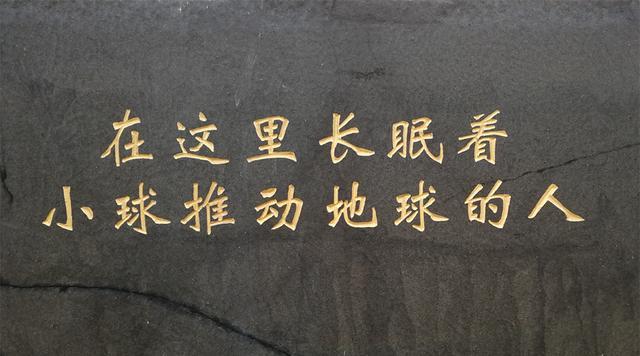 在这里长眠着
小球推动地球的人